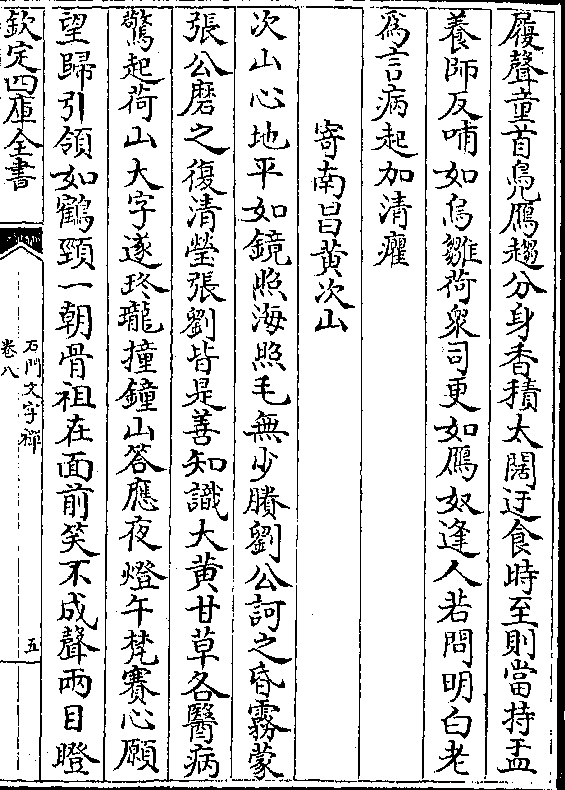 履聲童首鳧鴈趨分身香積太闊迂食時至則當持盂
養師反哺如烏雛荷衆司更如鴈奴逢人若問明白老
爲言病起加清癯
寄南昌黄次山
次山心地平如鏡照海照毛無少賸劉公訶之昏霧蒙
張公磨之復清瑩張劉皆是善知識大黄甘草各醫病
驚起荷山大字遂玲瓏撞鐘山答應夜燈午梵賽心願
望歸引領如鶴頸一朝骨祖在面前笑不成聲兩目瞪
欽定四庫全書
石門文字禪
卷八
五